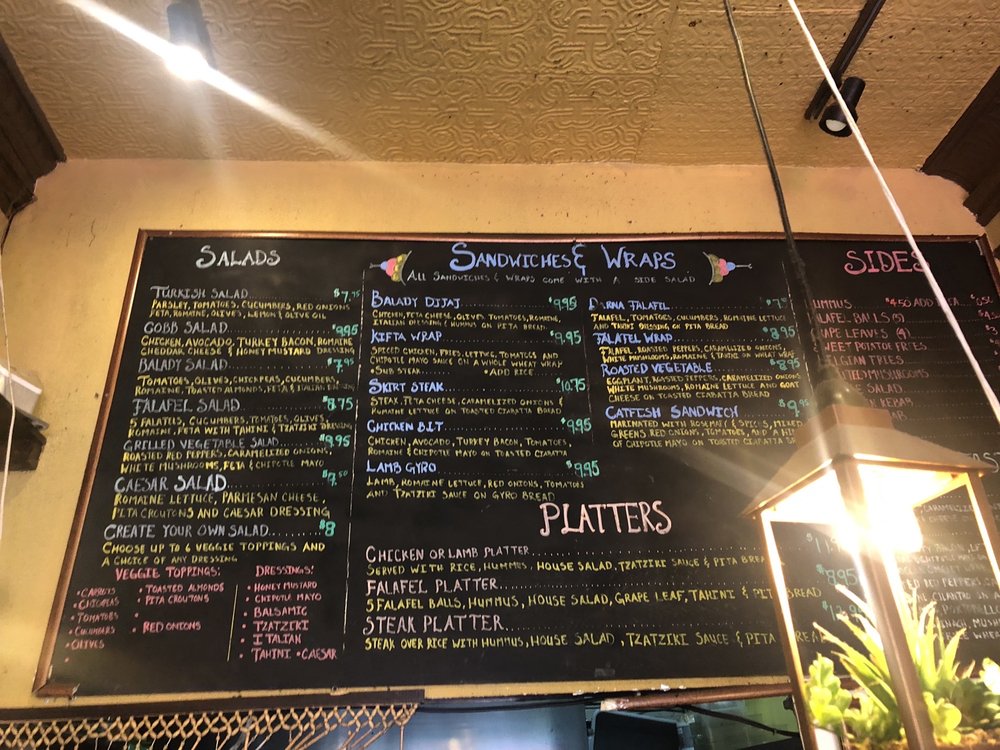 SALADS
TURKISH SALAD $7.75
PARSLEY, TOMATOES, CUCUMBERS, RED ONIONS
FETA, ROMAINE, OLIVES, LEMON & OLIVE OIL
COBB SALAD $9.95
CHICKEN, AVOCADO, TURKEY BACON, ROMAINE
CHEDDAR CHEESE & HONEY MUSTARD DRESSING
BALADY SALAD
TOMATOES, OLIVES, CHICKPEAS, CUCUMBERS,
ROMAINE, TOASTED ALMONDS, FETA & ITALIAN
FALAFEL SALAD $8.75
5 FALAFELS, CUCUMBERS, TOMATOES, OLIVES,
ROMAINE, FETA WITH TAHINI & TZATZIKI DRESSING
GRILLED VEGETABLE SALAD $9.95
ROASTED RED PEPPERS, CARAMELIZED ONIONS,
WHITE MUSHROOMS, FETA & CHIPOTLE MAYO
CAESAR SALAD $7.50
ROMAINE LETTUCE, PARMESAN CHEESE,
PITA CROUTONS AND CAESAR DRESSING
CREATE YOUR OWN SALAD $8
CHOOSE UP TO 6 VEGGIE TOPPINGS AND
A CHOICE OF ANY DRESSING
VEGGIE TOPPINGS:
• CARROTS
• CHICKPEAS
• TOMATOES
• CUCUMBERS
• OLIVES
• TOASTED ALMONDS
• PITA CROUTONS
• RED ONIONS
DRESSINGS:
• HONEY MUSTARD
• CHIPOTLE MAYO
• BALSAMIC
• TZATZIKI
• ITALIAN
• TAHINI • CAESAR
SANDWICHES & WRAPS
ALL SANDWICHES & WRAPS COME WITH A SIDE SALAD
BALADY DIJAJ $9.95
CHICKEN, FETA CHEESE, OLIVES, TOMATOES, ROMAINE,
ITALIAN DRESSING & HUMMUS ON PITA BREAD
KIFTA WRAP $9.95
SPICED CHICKEN, FRIES, LETTUCE, TOMATOES AND
CHIPOTLE MAYO SAUCE ON A WHOLE WHEAT WRAP
• SUB STEAK • ADD RICE
SKIRT STEAK $10.75
STEAK, FETA CHEESE, CARAMELIZED ONIONS &
ROMAINE LETTUCE ON TOASTED CIABATTA BREAD
CHICKEN BLT $9.95
CHICKEN, AVOCADO, TURKEY BACON, TOMATOES,
ROMAINE & CHIPOTLE MAYO ON TOASTED CIABATTA
LAMB GYRO $9.95
LAMB, ROMAINE LETTUCE, RED ONIONS, TOMATOES
AND TZATZIKI SAUCE ON GYRO BREAD
DARNA FALAFEL
FALAFEL, TOMATOES, CUCUMBERS, ROMAINE LETTUCE
AND TAHINI DRESSING ON PITA BREAD
FALAFEL WRAP $8.95
FALAFEL, ROASTED PEPPERS, CARAMELIZED ONIONS,
WHITE MUSHROOMS, ROMAINE & TAHINI ON WHEAT WRAP
ROASTED VEGETABLE $8.95
EGGPLANT, ROASTED PEPPERS, CARAMELIZED ONIONS
WHITE MUSHROOMS, ROMAINE LETTUCE AND GOAT
CHEESE ON TOASTED CIABATTA BREAD
CATFISH SANDWICH
MARINATED WITH ROSEMARY & SPICES, MIXED
GREENS, RED ONIONS, TOMATOES, AND A
OF CHIPOTLE MAYO ON TOASTED CIABATTA
PLATTERS
CHICKEN OR LAMB PLATTER
SERVED WITH RICE, HUMMUS, HOUSE SALAD, TZATZIKI SAUCE & PITA BREAD
FALAFEL PLATTER $8.95
5 FALAFEL BALLS, HUMMUS, HOUSE SALAD, GRAPE LEAF, TAHINI & PITA BREAD
STEAK PLATTER
STEAK OVER RICE WITH HUMMUS, HOUSE SALAD, TZATZIKI SAUCE & PITA BREAD
SIDES
HUMMUS $4.50 ADD
FALAFEL BALLS (5)
GRAPE LEAVES (4)
SWEET POTATOE FRIES
BELGIAN FRIES
MUSHROOMS
SALAD
KEBAB